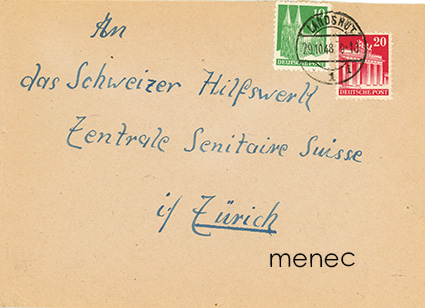 An
das Schweizer Hilfswerk
Zentrale Senitaire Suisse
i/ Zürich
10
DEUTSCHE POST
LANDSHUT
29.10.48
1
20
DEUTSCHE POST
menec